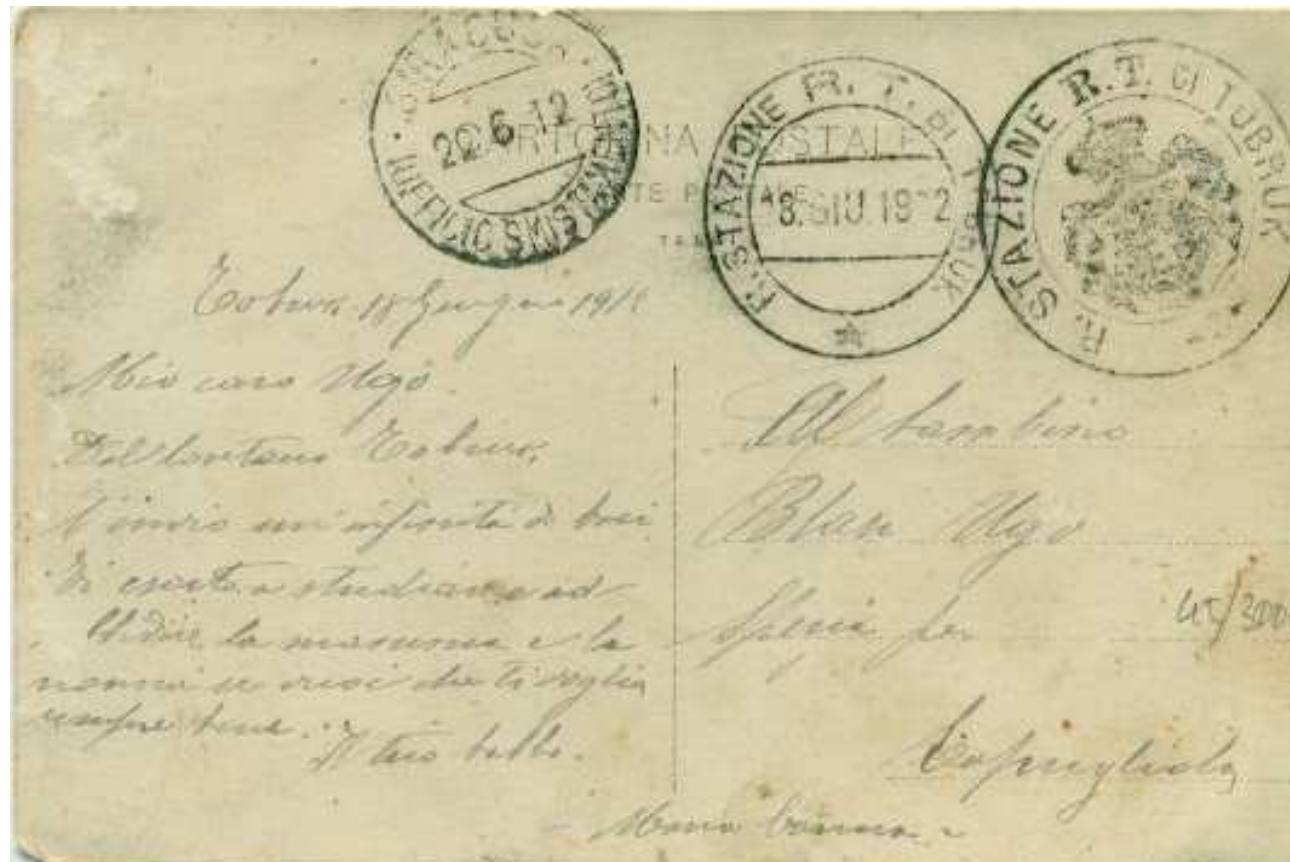 SIRACUSA
22 6 12
UFFICIO SMISTAMENTO
CARTOLINA POSTALE
R. STAZIONE R. T. DI TOBRUK
8. GIU. 1912
R. STAZIONE R. T. DI TOBRUK
Tobruk 18 Giugno 1912
Mio caro Ugo.
Dal lontano Tobruk,
t'invio un'infinità di baci
Ti esorto a studiare e ad
la mamma e la
nonna se vuoi che ti voglia
sempre bene.
Il tuo babbo.
Al bambino
Ugo
Spezia per
45/300